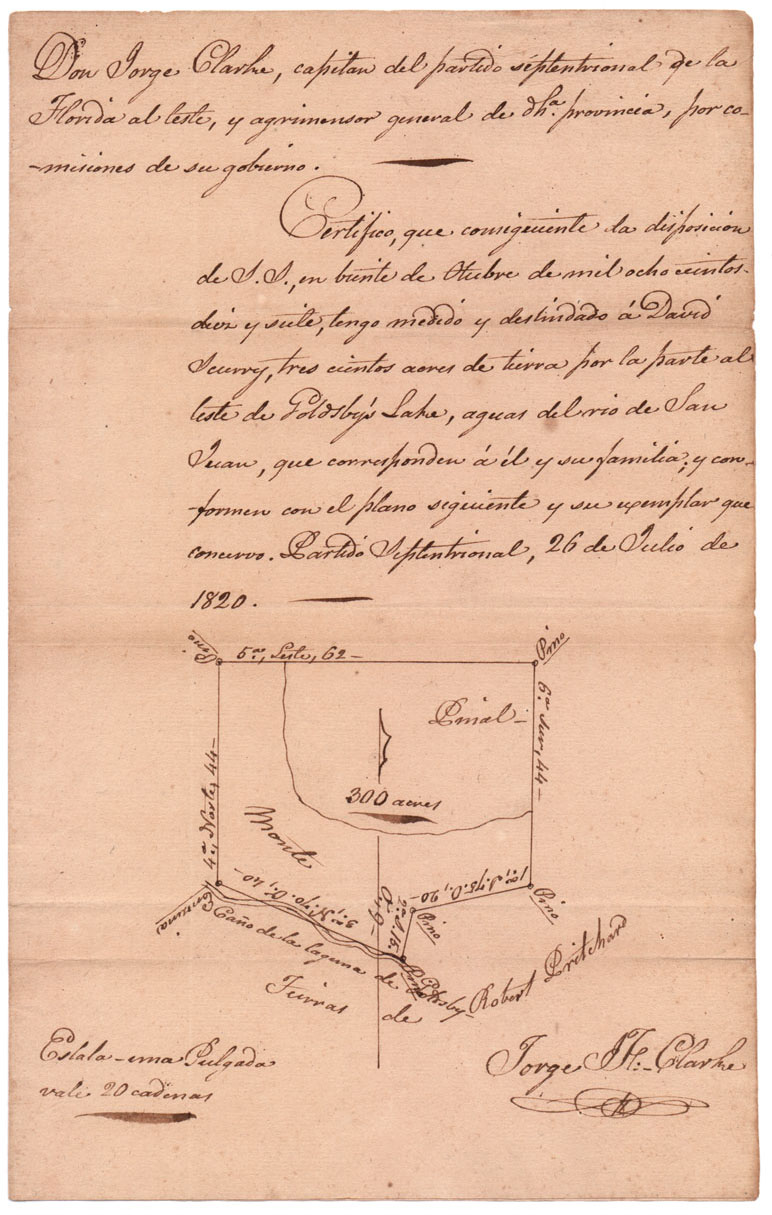 Don Jorge Clarke, capitan del partido séptentrional de la
Florida al leste, y agrimensor general de dha. provincia, por co-
-misiones de su gobierno.
Certifico, que consiguiente la disposicion
de S.S., en viente de Otubre de mil ocho cientos-
diez y siete, tengo medido y deslindado á David
Scurry, tres cientos acres de tierra por la parte al
leste de Goldsby's Lake, aguas del rio de San
Juan, que corresponden á él y su familia; y con-
-formen con el plano siguiente y su exemplar que
concervo. Partido Septentrional, 26 de Julio de
1820.
Pino
5a, Leste, 62-
Pino
4a, Norte, 44-
6a Sur, 44-
Pinal-
300 acres
Monte
3a, N. 70. O., 40-
2a, S. 15.
O., 9-
1a, S. 75. O., 20-
Pino
Pino
Pino
Caño de la laguna de Goldsby-
Tierras de Robert Pritchard
Escala-una Pulgada
vale 20 cadenas
Jorge J. F. Clarke